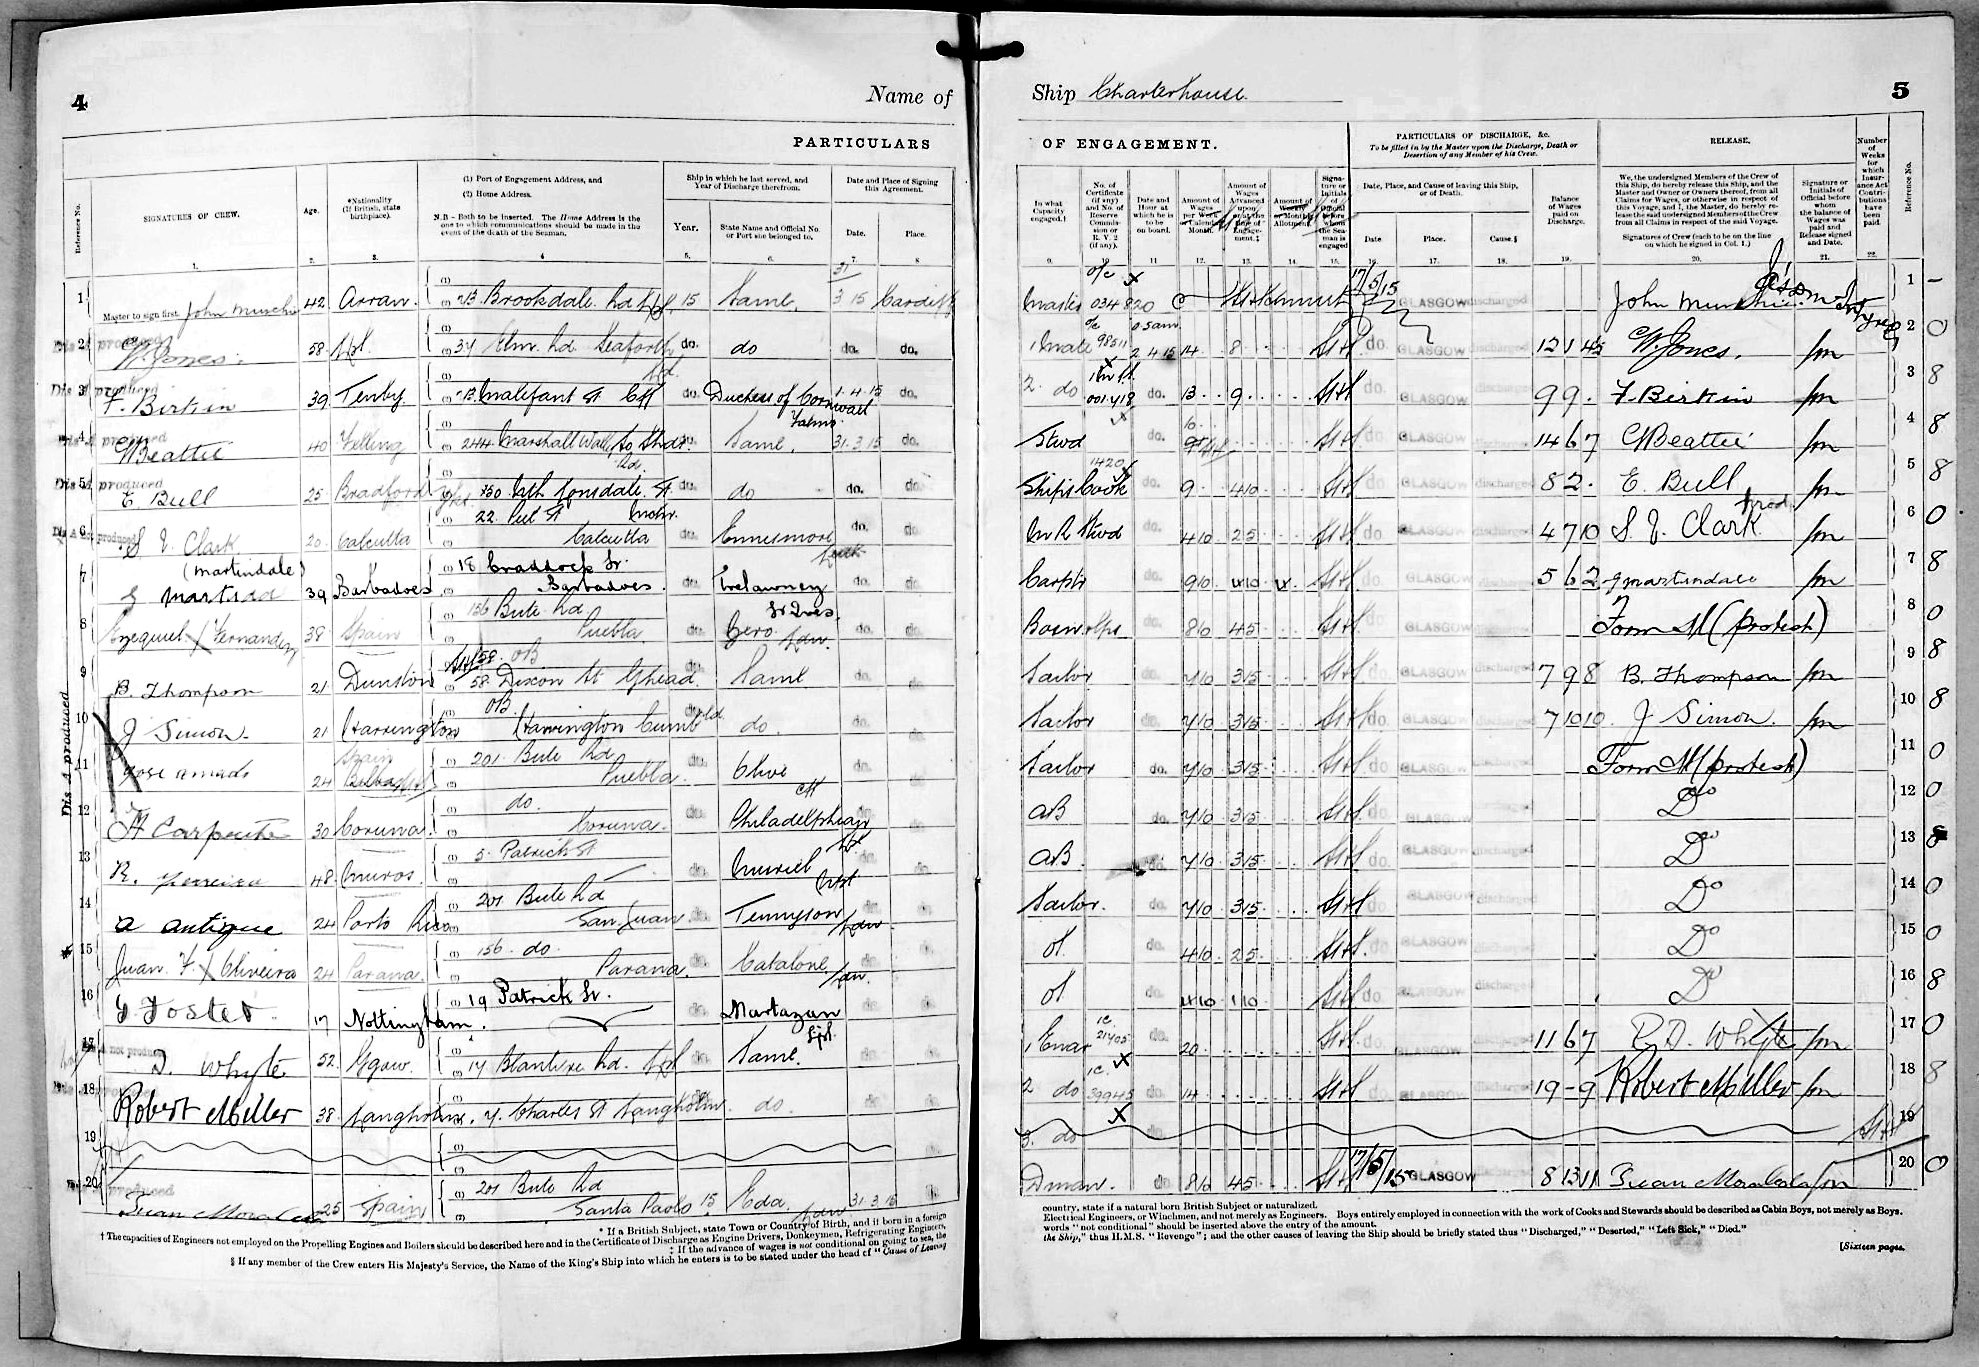 4
Name of
PARTICULARS
Reference No.
SIGNATURES OF CREW.
Age.
*Nationality
(If British, state
birthplace).
(1) Port of Engagement Address, and
(2) Home Address.
N.B - Both to be inserted. The Home Address is the
one to which communications should be made in the
event of the death of the Seaman.
Ship in which he last served, and
Year of Discharge therefrom.
Year.
State Name and Official No.
or Port she belonged to.
Date and Place of Signing
this Agreement.
Date.
Place.
1. 2. 3. 4 5. 6. 7. 8
31
1 Master to sign first. John Murchie 42 Arran. 23 Brooksdale Rd Lpl. 15 Same. 3 15 Cardiff
2 W. Jones. 58 Lpl. 37 Elm Rd Seaforth do. do do. do.
Dis A produced
3 F. Birkin 39 Tenby. Malefant St Cff do. Duchess of Cornwall 1.4.15 do.
4 Beattie 40 244 Marshall Wall So Shds. do. Same. 31.3.15 do.
Dis A produced
5 E. Bull 25 Bradford 150 Nth Lonsdale St do. do do. do.
6 S. J. Clark 20 Calcutta 22 Peel St Calcutta do. do.
7 (Martindale) 39 Barbadoes 18 Craddock St. Barbadoes. do. Trelawney St Ives do. do.
8 Ezequiel X Fernandez 38 Spain 156 Bute Rd Puebla. do. do. do.
9 B. Thompson 21 Dunston 58 Dixon St Ghead. do. Same do. do.
10 J Simon. 21 Harrington OB. Harrington Cumbld do. do. do. do.
11 Jose amado 24 Spain 201 Bute Rd Puebla. do. Olive do. do.
12 Carpente 30 Coruna. do. Coruna. do. Philadelphian do. do.
13 R. Ferreira 48 Muros. 5 Patrick St do. do. do.
14 a antigue 24 Porto Rico 201 Bute Rd San Juan do. Tennyson do. do.
15 Juan F. X Oliveira 24 Parana. 156 do. Parana. do. Catalone do. do.
16 G Foster. 17 Nottingham. 19 Patrick St. do. Martazan do. do.
17 D. Whyte 52 Ggow. 14 Blantyre Rd. Lpl do. Same. do. do.
18 Robert Miller 38 Langholm. 7. Charles St Langholm do. do. do. do.
19
20 25 Spain 201 Bute Rd Santa Paolo 15 Eda. 31.3.15 do.
Dis A produced
* If a British Subject, state Town or Country of Birth, and if born in a foreign
† The capacities of Engineers not employed on the Propelling Engines and Boilers should be described here and in the Certificate of Discharge as Engine Drivers, Donkeymen, Refrigerating Engineers,
‡ If the advance of wages is not conditional on going to sea, the
§ If any member of the Crew enters His Majesty's Service, the Name of the King's Ship into which he enters is to be stated under the head of "Cause of Leaving
Ship Charterhouse
5
OF ENGAGEMENT.
PARTICULARS OF DISCHARGE, &c.
To be filled in by the Master upon the Discharge, Death or
Desertion of any Member of his Crew.
RELEASE.
In what
Capacity
engaged.†
No. of
Certificate
(if any)
and No. of
Reserve
Commis-
sion or
R. V. 2
(if any).
Date and
Hour at
which he is
to be
on board.
Amount of
Wages
per Week
or Calendar
Month.
Amount of
Wages
Advanced
upon
or at the
time of
Engage-
ment.‡
Amount of
Weekly
or Monthly
Allotment.
Signa-
ture or
Initials
of
Official
before
whom
the Sea-
man is
engaged
Date, Place, and Cause of leaving this Ship,
or of Death.
Date
Place.
Cause.§
Balance
of Wages
paid on
Discharge.
We, the undersigned Members of the Crew of
this Ship, do hereby release this Ship, and the
Master and Owner or Owners thereof, from all
Claims for Wages, or otherwise in respect of
this Voyage, and I, the Master, do hereby re-
lease the said undersigned Members of the Crew
from all Claims in respect of the said Voyage.
Signatures of Crew (each to be on the line
on which he signed in Col. 1.)
Signature or
Initials of
Official before
whom
the balance of
Wages was
paid and
Release signed
and Date.
Number
of
Weeks
for
which
Insur-
ance Act
Contri-
butions
have
been
paid.
Reference No.
9. 10. 11 12. 13. 14. 15. 16. 17. 18. 19. 20. 21. 22.
Master 034820 17/5/15 GLASGOW discharged John Murchie 1 –
1 Mate 98511 2 4 15 14 8 do. GLASGOW discharged W. Jones. 2 0
2 do 001418 do. 13 9 do. GLASGOW discharged 99. F. Birkin 3 8
Stwd do. do. GLASGOW discharged 14 6 7 Beattie 4 8
Ships Cook do. 9 4 10 do. GLASGOW discharged 8 2 . E. Bull 5 8
M R Stwd do. 4 10 2 5 do. GLASGOW discharged 4 7 10 S. J. Clark 6 0
Carptr do. 9 10 4 10 do. GLASGOW discharged 5 6 2 J martindale 7 8
Bosn do. 8 10 4 5 do. GLASGOW discharged Form M (protest) 8 0
Sailor do. 7 10 3 15 do. GLASGOW discharged 7 9 8 B. Thompson 9 8
Sailor do. 7 10 3 15 do. GLASGOW discharged 7 10 10 J Simon. 10 8
Sailor do. 7 10 3 15 do. GLASGOW discharged Form M (protest) 11 0
AB do. 7 10 3 15 do. GLASGOW discharged Do 12 0
AB do. 7 10 3 15 do. GLASGOW discharged Do 13 8
Sailor. do. 7 10 3 15 do. GLASGOW discharged Do 14 0
OS do. 4 10 2 5 do. GLASGOW discharged Do 15 0
OS do. 4 10 1 10 do. GLASGOW discharged Do 16 8
1 Engr 21405 do. 20 do. GLASGOW discharged 11 6 7 D. Whyte 17 0
2 do 39945 do. 14 do. GLASGOW discharged 19 – 9 Robert Miller 18 8
3. do do 19
Dman. do 8 10 4 5 17/5/15 GLASGOW discharged 8 13 11 20 0
country, state if a natural born British Subject or naturalized.
Electrical Engineers, or Winchmen, and not merely as Engineers. Boys entirely employed in connection with the work of Cooks and Stewards should be described as Cabin Boys, not merely as Boys.
words "not conditional" should be inserted above the entry of the amount.
the Ship," thus H.M.S. "Revenge"; and the other causes of leaving the Ship should be briefly stated thus "Discharged," "Deserted," "Left Sick," "Died."
[Sixteen pages.